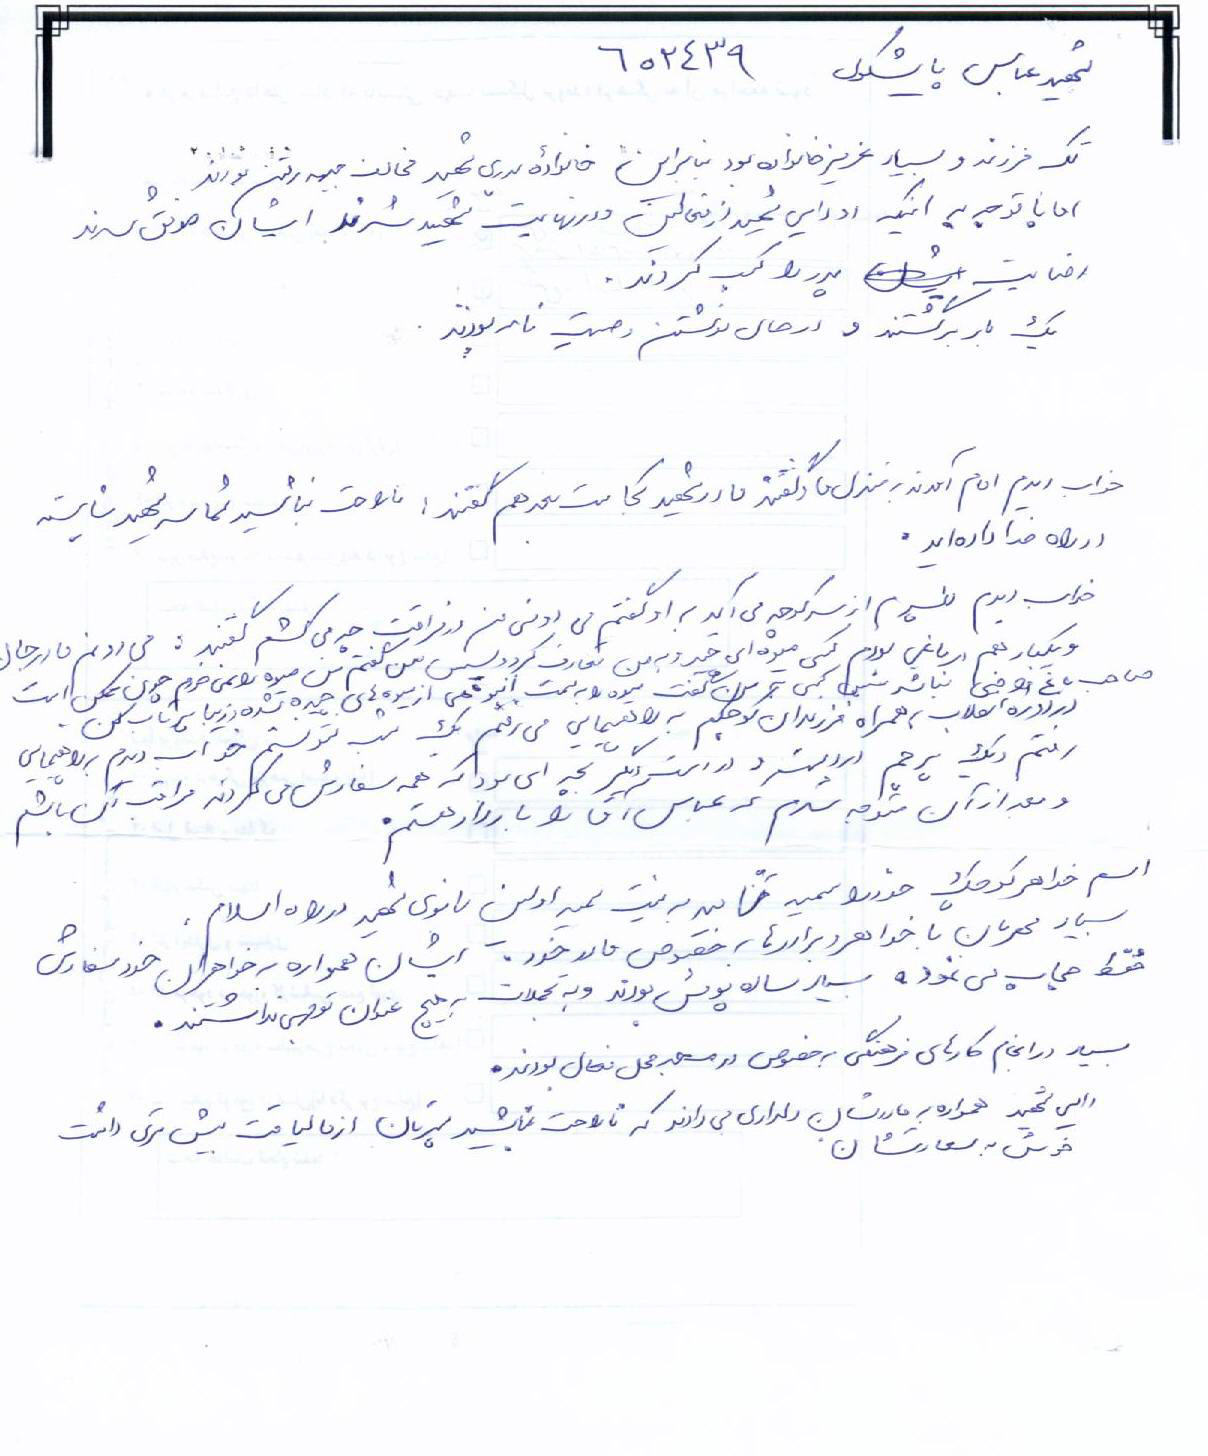 شهید عباس پاشکوی ٦٥٢٤٣٩
تک فرزند و بسیار عزیز خانواده بود بنابراین خانوادهٔ پدری شهید مخالف جبهه رفتن بودند
اما با توجه به اینکه او دایی شهید از رفتن و در نهایت شهید شدند ایشان موفق شدند
رضایت پدر را کسب کردند.
یک بار برگشتند و در حال نوشتن وصیت نامه بودند.
خواب دیدم امام آمدند به منزل ما و گفتند مادر شهید کجاست بعد هم گفتند: ناراحت نباشید شما سه شهید شایسته
در راه خدا داده‌اید.
خواب دیدم پسرم از سر کوچه می‌آید به او گفتم می دونی من در فراقت چه می کشم گفتند: می دونم مادر جان
و یکبار هم در باغی بودم کسی میوه ای چید و به من تعارف کرد و سپس من گفتم من میوه را نمی خورم چون ممکن است
صاحب باغ راضی نباشد کسی به من گفت میوه را به سمت انبوهی از میوه‌های چیده شده و زیبا پرتاب کن
در دوره انقلاب به همراه فرزندان کوچکم به راهپیمایی می رفتم یک شب نتوانستم خواب دیدم به راهپیمایی
رفتم و یک پرچم در دست و در دست دیگر بچه ای بود که همه سفارش می کردند مراقب آن باشم
و بعد از آن متوجه شدم که عباس آقا را باردار هستم.
اسم خواهر کوچک خود را سمیه به نیت سمیه اولین بانوی شهید در راه اسلام.
بسیار مهربان با خواهر و برادرها به خصوص مادر خود. ایشان همواره به خواهران خود سفارش
حفظ حجاب می نمود. بسیار ساده پوش بودند و به تجملات به هیچ عنوان توجهی نداشتند.
بسیار در انجام کارهای فرهنگی به خصوص در مسجد محل فعال بودند.
دایی شهید همواره به مادرشان دلداری می دادند که ناراحت نباشید پسرتان از ما لیاقت بیش تری داشت
خوش به سعادتشان